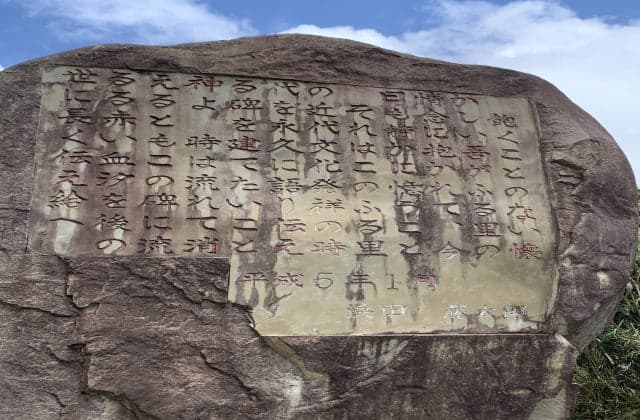 飽くことのない 懐
かしい吾がふる里の
情念に抱かれて 今
日も静かに憶うこと
それはこのふる里
の近代文化発祥の時
代を永久に語り伝え
る碑を建てたいこと
神よ 時は流れて消
えるともこの碑に流
るる赤い血汐を後の
世に長く伝え給へ
平成5年1月
浜田